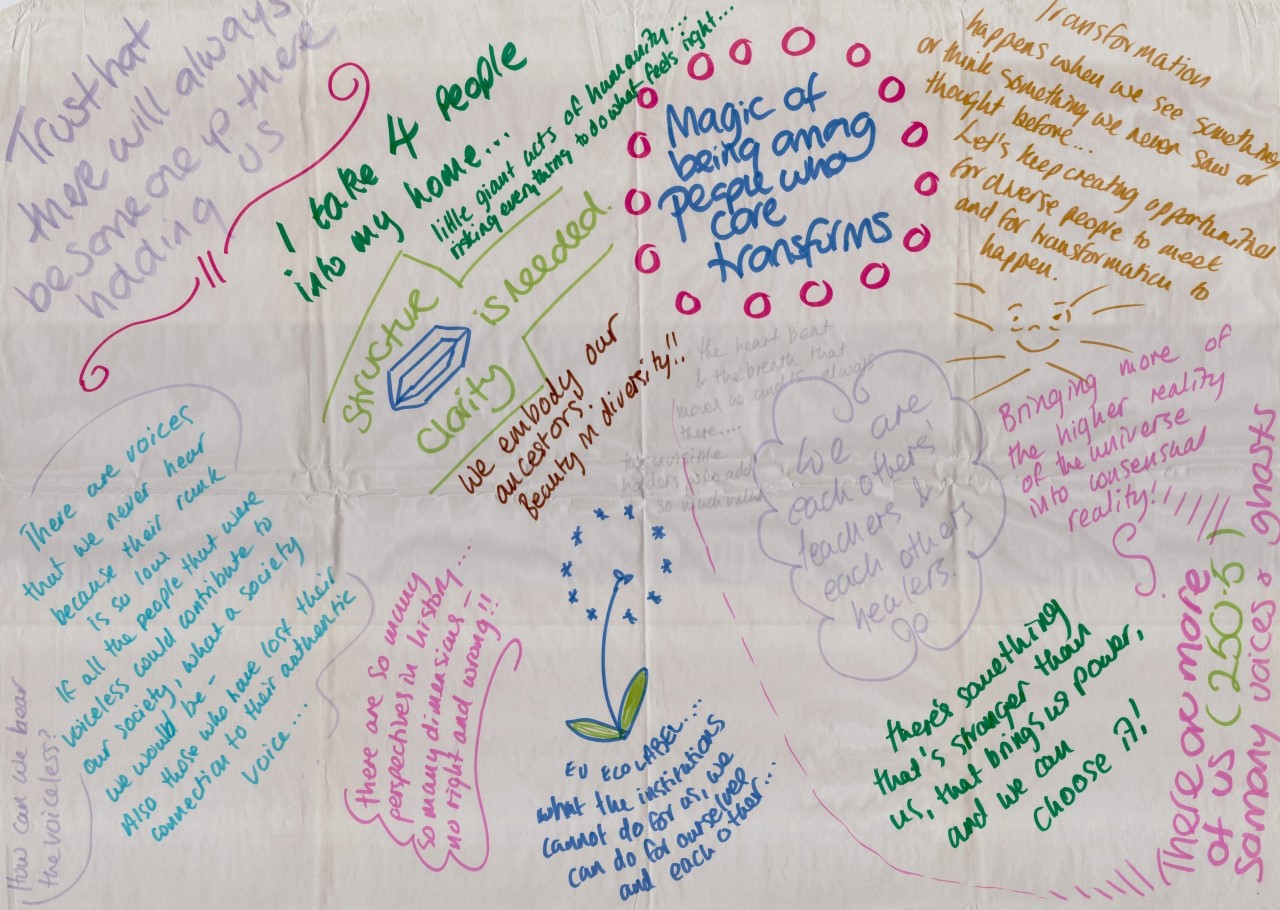 Trust that
there will always
be someone up there
holding
us
I take 4 people
into my home...
little giant acts of humanity...
risking everything to do what feels right...
Magic of
being among
people who
core
transforms
Transformation
happens when we see something
or think something we never saw or
thought before...
Let's keep creating opportunities
for diverse people to meet
and for transformation to
happen.
Structure
is needed.
Clarity
We embody our
ancestors!
Beauty in diversity!!
the heart beat
& the breath that
moves us and is always
there....
the invisible
holders who add
so much value
We are
each others'
teachers &
each others
healers.
Bringing more of
the higher reality
of the universe
into consensual
reality!
There are voices
that we never hear
because their rank
is so low
If all the people that were
voiceless could contribute to
our society, what a society
we would be -
Also those who have lost their
connection to their authentic
voice....
How can we hear
the voiceless?
There are so many
perspectives in history...
so many dimensions -
no right and wrong!!
EU ECOLABEL....
what the institutions
cannot do for us, we
can do for ourselves
and each other...
there's something
that's stronger than
us, that brings us power,
and we can
choose it!
There are more
of us (250.5)
so many voices & ghosts